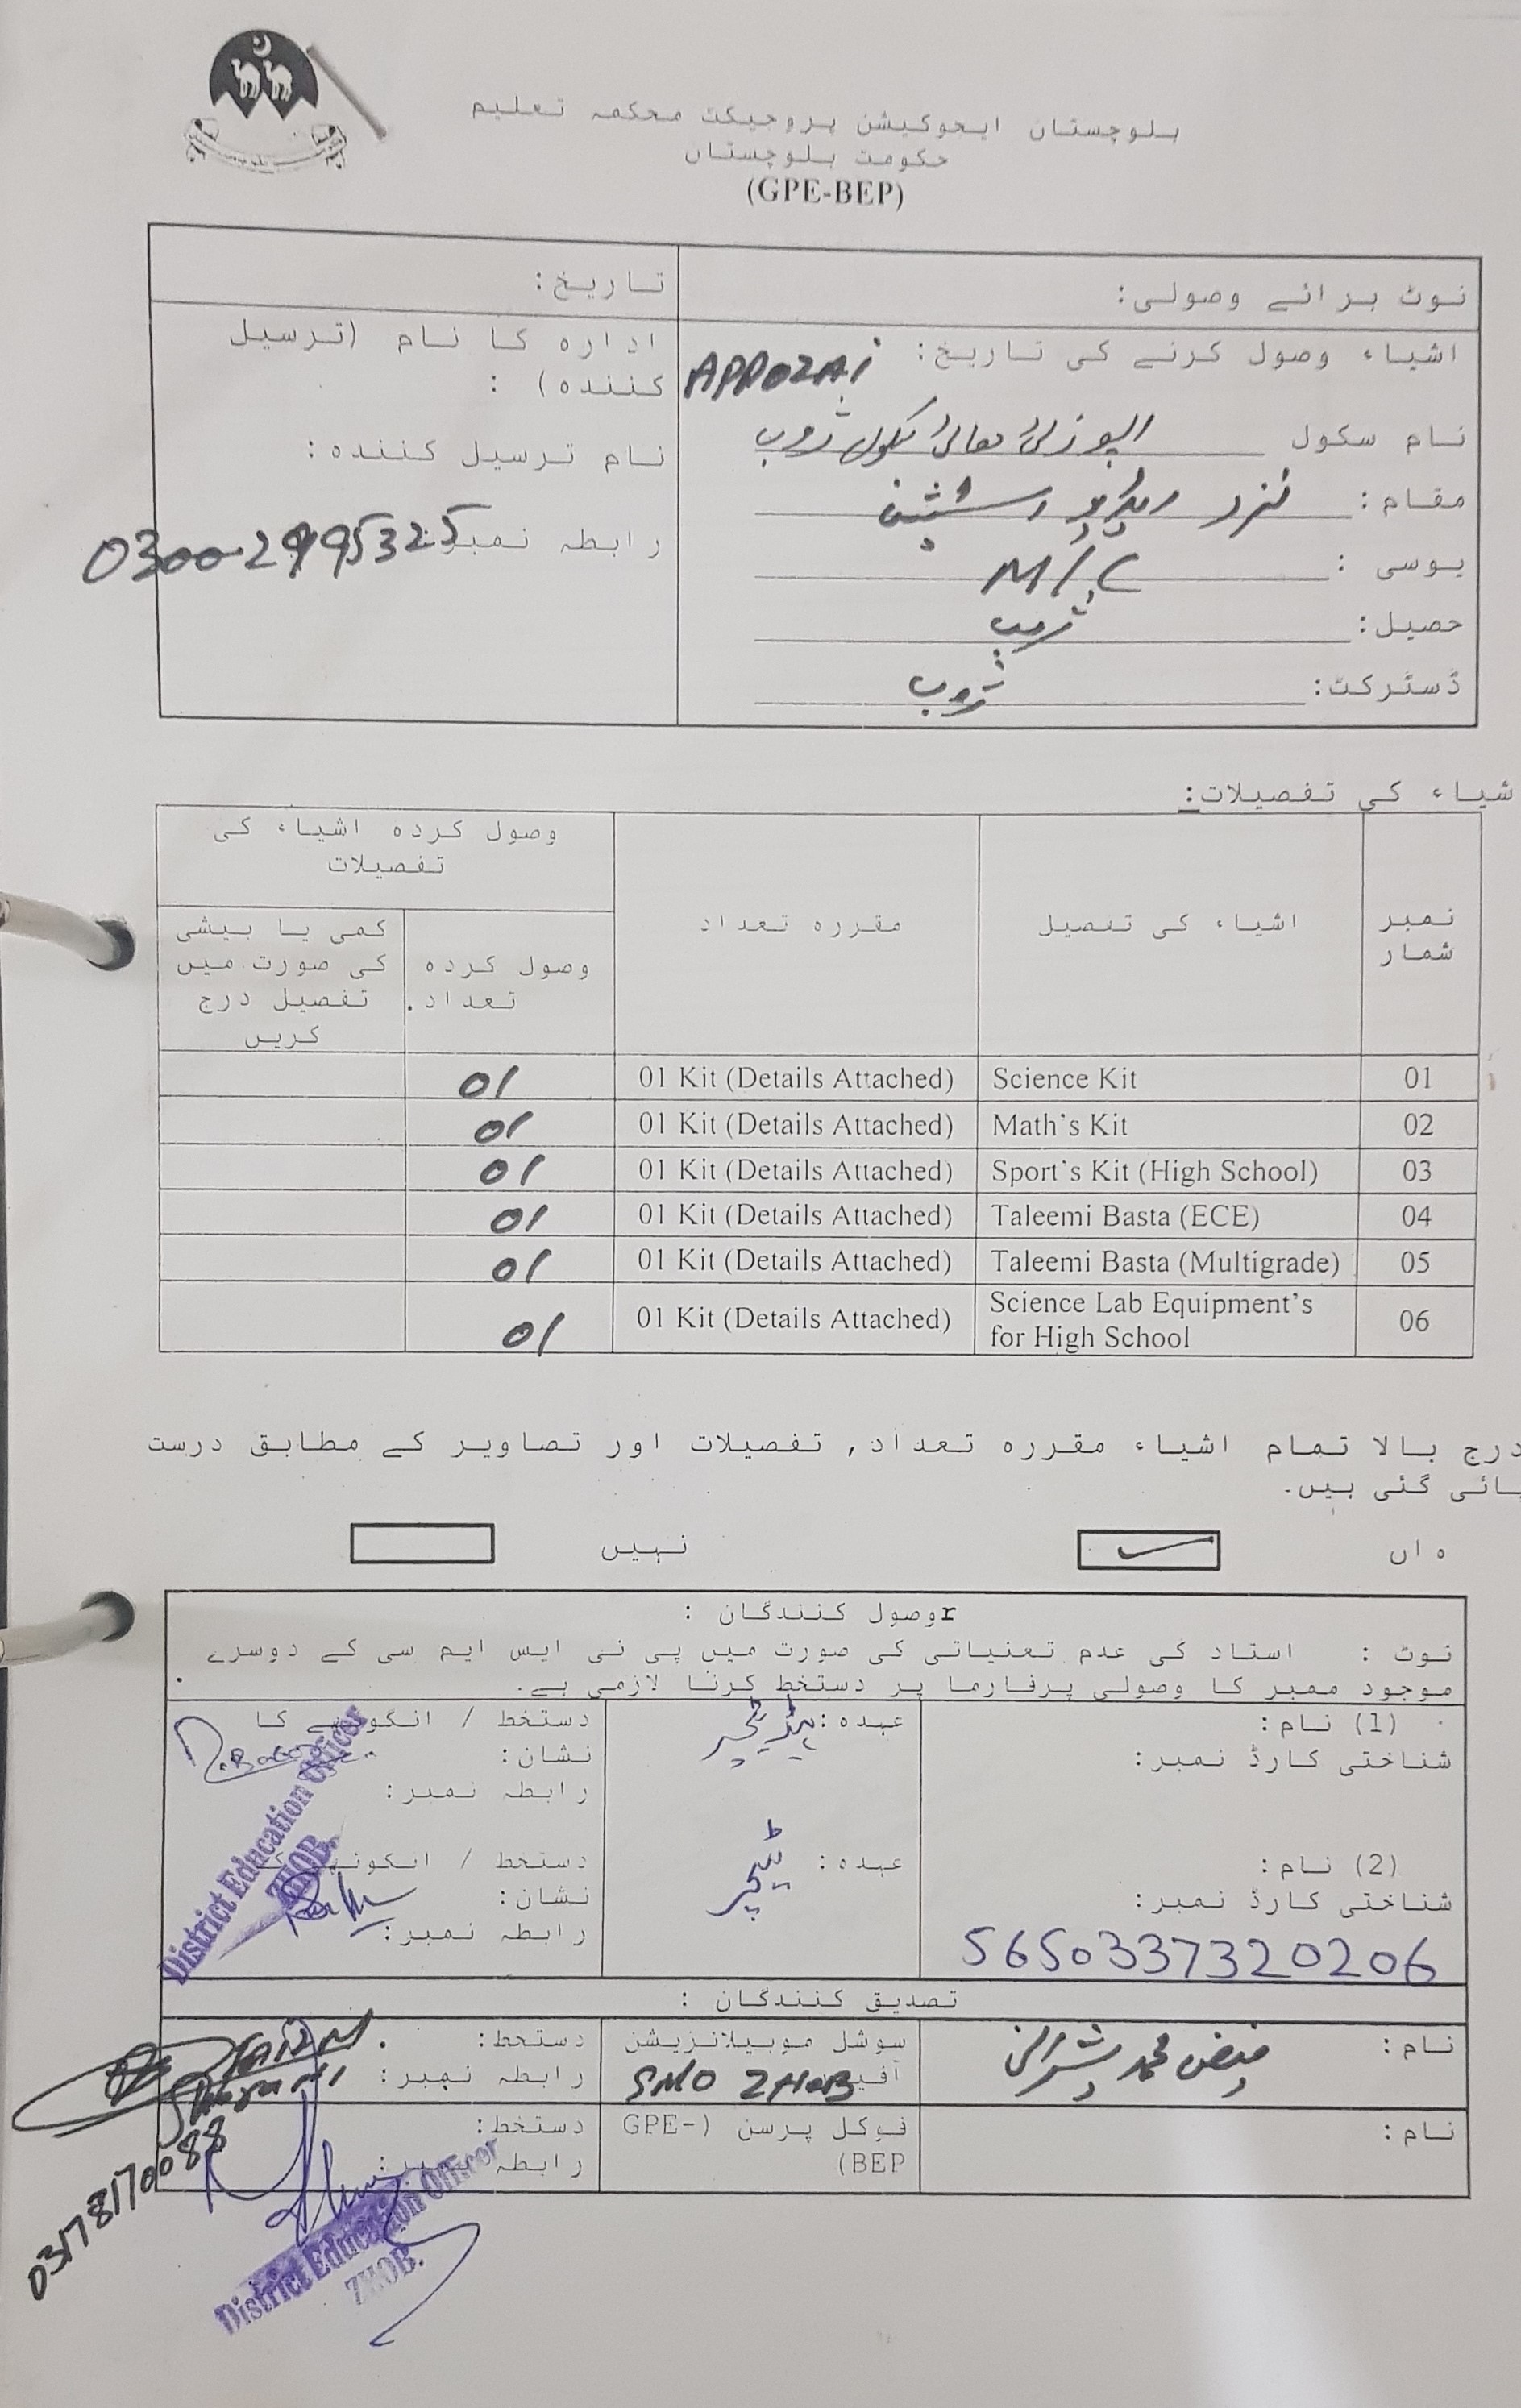 بلوچستان ایجوکیشن پروجیکٹ محکمہ تعلیم
حکومت بلوچستان
(GPE-BEP)
نوٹ برائے وصولی:
تاریخ:
اشیاء وصول کرنے کی تاریخ: APPOZAI
نام سکول اپوزئی ہائی سکول ژوب
مقام: نزد ریڈیو اسٹیشن
یوسی : M/C
حصیل: ژوب
ڈسٹرکٹ: ژوب
ادارہ کا نام (ترسیل
کنندہ) :
نام ترسیل کنندہ:
رابطہ نمبر:
شیاء کی تفصیلات:
نمبر شمار
اشیاء کی تفصیل
مقررہ تعداد
وصول کردہ اشیاء کی تفصیلات
وصول کردہ تعداد
کمی یا بیشی کی صورت میں تفصیل درج کریں
01 Science Kit 01 Kit (Details Attached) 01
02 Math's Kit 01 Kit (Details Attached) 01
03 Sport's Kit (High School) 01 Kit (Details Attached) 01
04 Taleemi Basta (ECE) 01 Kit (Details Attached) 01
05 Taleemi Basta (Multigrade) 01 Kit (Details Attached) 01
06 Science Lab Equipment's for High School 01 Kit (Details Attached) 01
درج بالا تمام اشیاء مقررہ تعداد, تفصیلات اور تصاویر کے مطابق درست
پائی گئی ہیں.
ہاں
نہیں
rوصول کنندگان :
نوٹ : استاد کی عدم تعنیاتی کی صورت میں پی ٹی ایس ایم سی کے دوسرے
موجود ممبر کا وصولی پرفارما پر دستخط کرنا لازمی ہے.
(1) نام:
شناختی کارڈ نمبر:
عہدہ: ہیڈ ٹیچر
دستخط / انگوٹھے کا
نشان:
رابطہ نمبر:
(2) نام:
شناختی کارڈ نمبر:
5650337320206
عہدہ: ٹیچر
دستخط / انگوٹھے کا
نشان:
رابطہ نمبر:
District Education Officer
ZHOB.
تصدیق کنندگان :
نام: فیض محمد شیرانی
سوشل موبیلائزیشن
آفیسر SMO ZHOB
دستخط:
رابطہ نمبر:
03178170088
نام:
فوکل پرسن (GPE-
BEP)
دستخط:
رابطہ نمبر:
District Education Officer
ZHOB.